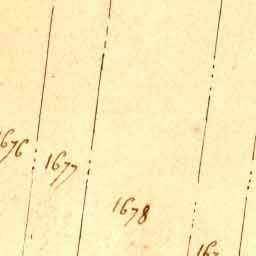 1676
1677
1678
167